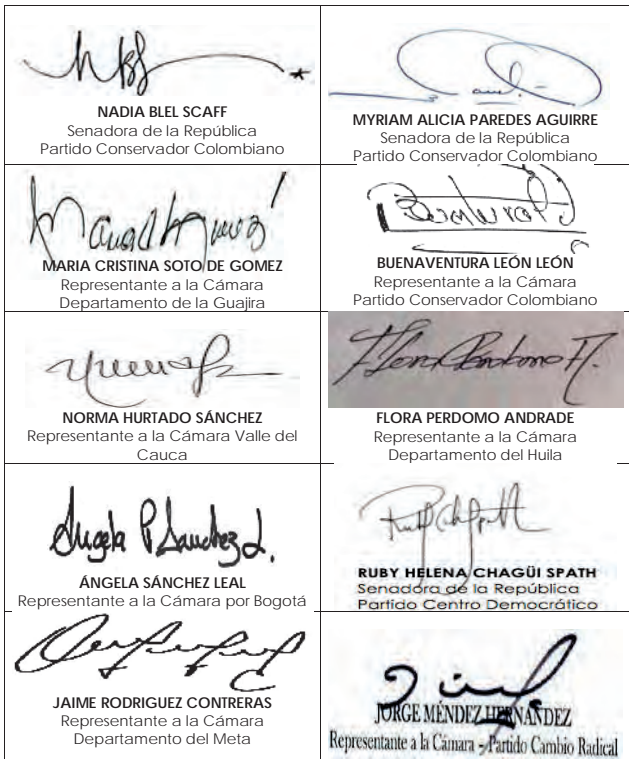 NADIA BLEL SCAFF
Senadora de la República
Partido Conservador Colombiano
MYRIAM ALICIA PAREDES AGUIRRE
Senadora de la República
Partido Conservador Colombiano
MARIA CRISTINA SOTO DE GOMEZ
Representante a la Cámara
Departamento de la Guajira
BUENAVENTURA LEÓN LEÓN
Representante a la Cámara
Partido Conservador Colombiano
NORMA HURTADO SÁNCHEZ
Representante a la Cámara Valle del
Cauca
Flora Perdomo A.
FLORA PERDOMO ANDRADE
Representante a la Cámara
Departamento del Huila
Angela P Sanchez L.
ÁNGELA SÁNCHEZ LEAL
Representante a la Cámara por Bogotá
RUBY HELENA CHAGÜI SPATH
Senadora de la República
Partido Centro Democrático
JAIME RODRIGUEZ CONTRERAS
Representante a la Cámara
Departamento del Meta
JORGE MÉNDEZ HERNÁNDEZ
Representante a la Cámara - Partido Cambio Radical